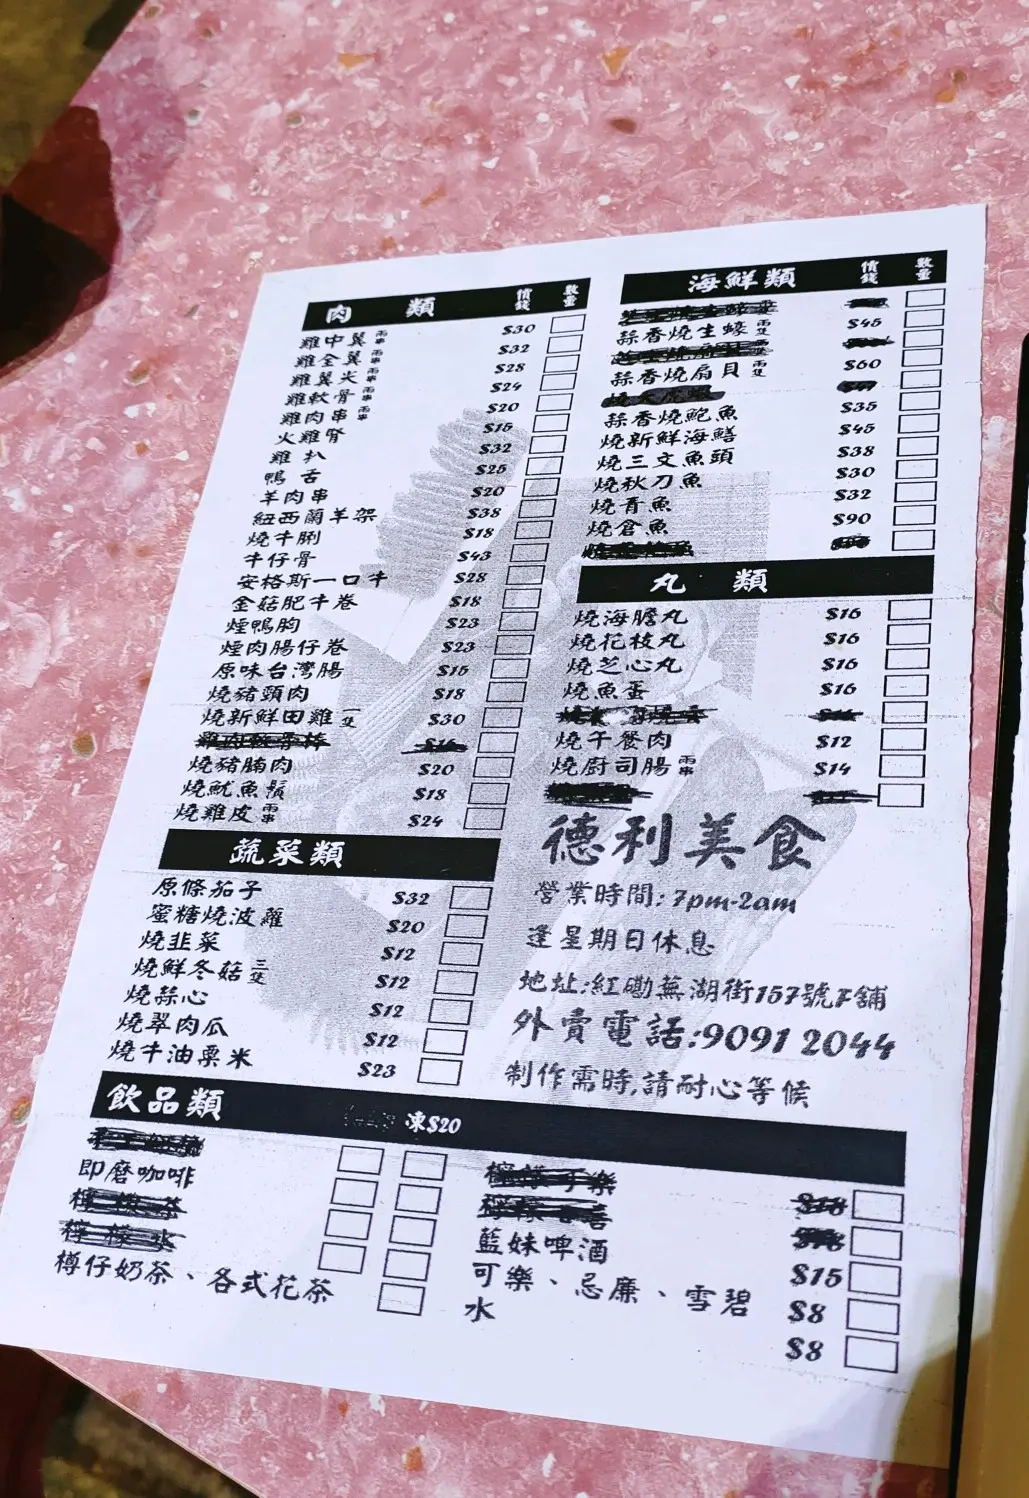 肉 類 價錢 數量
雞中翼 兩串 $30
雞全翼 兩串 $32
雞翼尖 兩串 $28
雞軟骨 兩串 $24
雞肉串 兩串 $20
火雞腎 $15
雞扒 $32
鴨舌 $25
羊肉串 $20
紐西蘭羊架 $38
燒牛脷 $18
牛仔骨 $43
安格斯一口牛 $28
金菇肥牛卷 $18
煙鴨胸 $23
煙肉腸仔卷 $23
原味台灣腸 $15
燒豬頸肉 $18
燒新鮮田雞 一隻 $30
雞肉軟骨棒
燒豬腩肉 $20
燒魷魚鬚 $18
燒雞皮 兩串 $24
蔬菜類
原條茄子 $32
蜜糖燒波蘿 $20
燒韭菜 $12
燒鮮冬菇 三隻 $12
燒蒜心 $12
燒翠肉瓜 $12
燒牛油粟米 $23
海鮮類 價錢 數量
蒜香燒生蠔 兩隻 $45
蒜香燒扇貝 兩隻 $60
蒜香燒鮑魚 $35
燒新鮮海鱔 $45
燒三文魚頭 $38
燒秋刀魚 $30
燒青魚 $32
燒倉魚 $90
丸 類
燒海膽丸 $16
燒花枝丸 $16
燒芝心丸 $16
燒魚蛋 $16
燒午餐肉 $12
燒廚司腸 兩串 $14
德利美食
營業時間: 7pm-2am
逢星期日休息
地址:紅磡蕪湖街157號F舖
外賣電話:9091 2044
制作需時,請耐心等候
飲品類 凍$20
即磨咖啡
檸檬茶
檸檬水
樽仔奶茶、各式花茶
檸檬可樂 $18
藍妹啤酒 $15
可樂、忌廉、雪碧 $8
水 $8